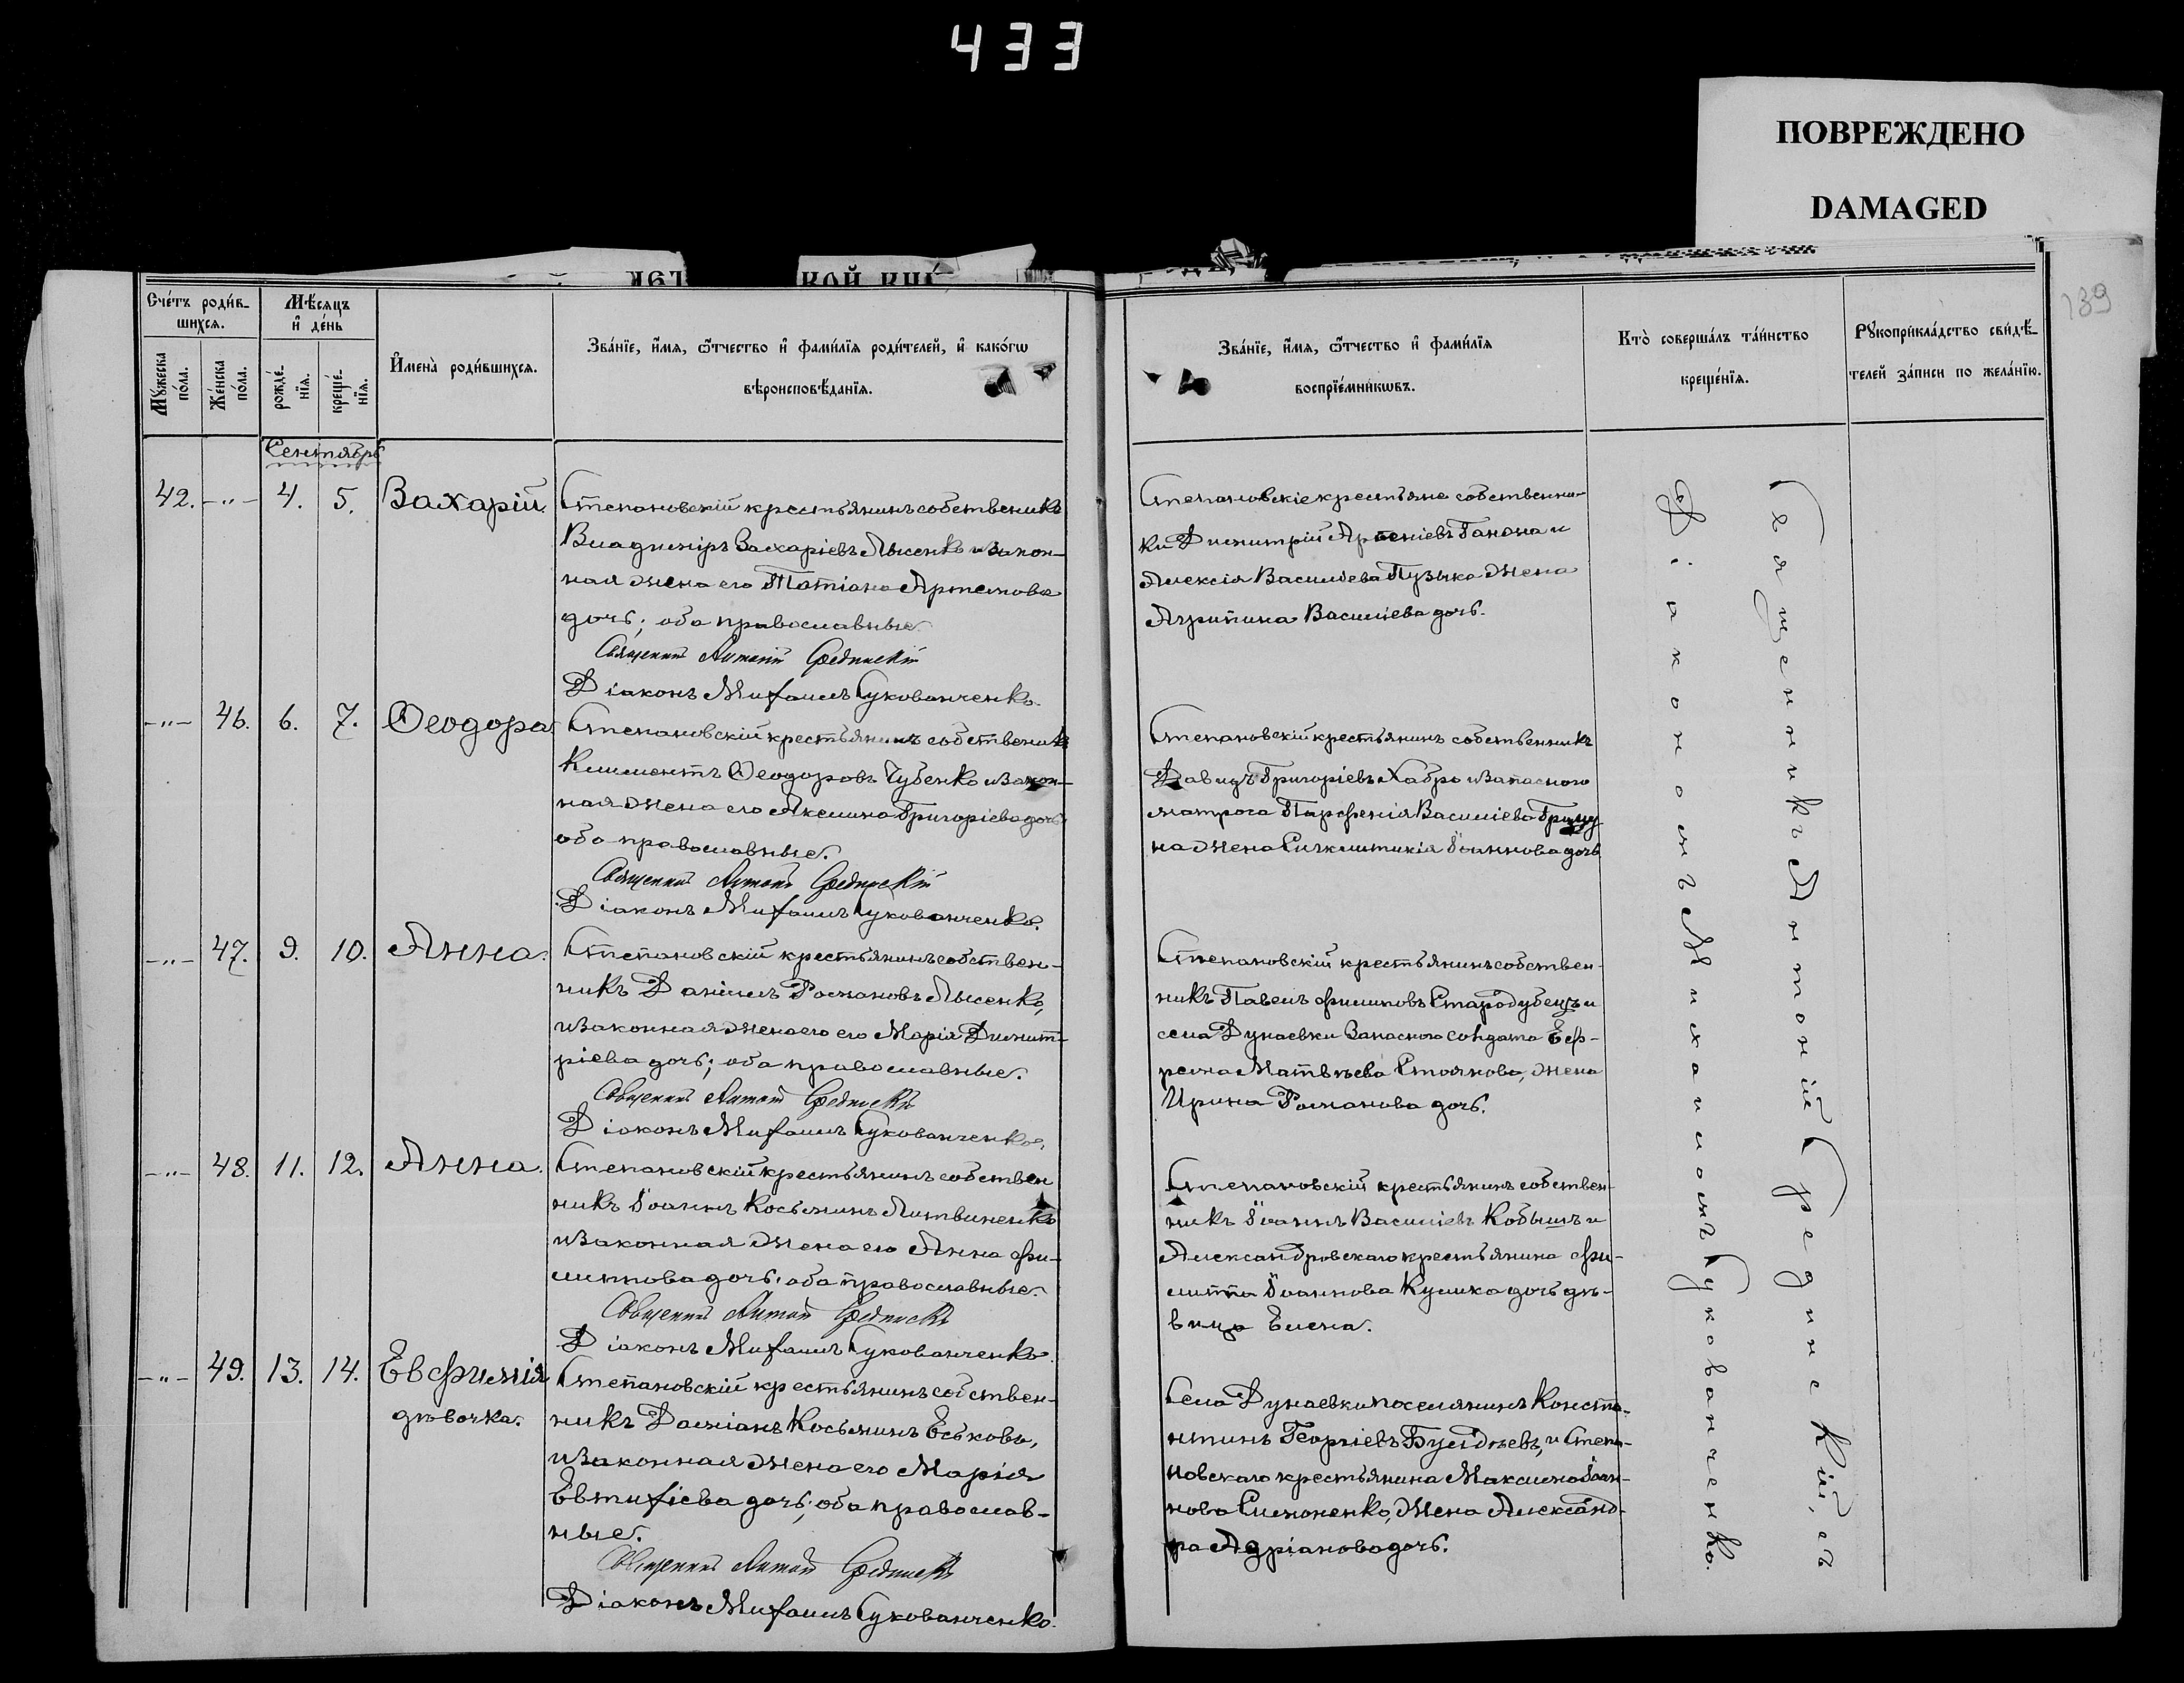 433
ПОВРЕЖДЕНО
DAMAGED
139
Счéтъ роди́в-
шихсѧ.
Мѣ́сѧцъ
и҆ дéнь
Мꙋ́жеска
по́ла.
Жéнска
по́ла.
рождé-
нїѧ.
крещé-
нїѧ.
И҆мена̀ роди́вшихсѧ.
Звáнїе, и҆́мѧ, ѻ҆́тчество и҆ фами́лїѧ роди́телей, и҆ какóгѡ
вѣроисповѣ́данїѧ.
Звáнїе, и҆́мѧ, ѻ҆́тчество и҆ фами́лїѧ
воспрїéмникѡвъ.
Ктò совершáлъ тáинство
крещéнїѧ.
Рꙋкоприклáдство свидѣ́-
телей зáписи по желáнїю.
Сентябрь
42. -"- 4. 5. Захарій
Степановскій крестьянинъ собственикъ
Владиміръ Захаріевъ Лысенко и закон-
ная жена его Татіана Артемова
дочь; оба православные.
Священникъ Антоній Срединскій
Діаконъ Михаилъ Сукованченко.
Степановскіе крестьяне собственни-
ки Димитрій Арсеніевъ Ганона и
Алексія Васильева Пузыка жена
Агрипина Василіева дочь.
-"- 46. 6. 7. Ѳеодора
Степановскій крестьянинъ собственикъ
Климентъ Ѳеодоровъ Чубенко и закон-
ная жена его Акелина Григоріева дочь
оба православные.
Священникъ Антоній Срединскій
Діаконъ Михаилъ Сукованченко.
Степановскій крестьянинъ собственникъ
Давидъ Григоріевъ Хабро и запасного
матроса Парфенія Василіева
на жена Сигклитикія Іоаннова дочь
-"- 47. 9. 10. Анна.
Степановскій крестьянинъ собствен-
никъ Даніилъ Романовъ Лысенко,
и законная жена его его Марія Димит-
ріева дочь; оба православные.
Священникъ Антоній Срединскій
Діаконъ Михаилъ Сукованченко.
Степановскій крестьянинъ собствен-
никъ Павелъ Филиповъ Стародубецъ и
села Дунаевки запасного солдата Еф-
рема Матвѣева Стоянова, жена
Ирина Романова дочь.
-"- 48. 11. 12. Анна.
Степановскій крестьянинъ собствен
никъ Іоаннъ Косьминъ Литвиненко
и законная жена его Анна Фи-
липпова дочь; оба православные.
Священникъ Антоній Срединскій
Діаконъ Михаилъ Сукованченко
Степановскій крестьянинъ собствен-
никъ Іоаннъ Василіевъ Кобылъ и
Александровскаго крестьянина Фи-
липпа Іоаннова Кулика дочь дѣ-
вица Елена.
-"- 49. 13. 14. Евфимія
дѣвочка.
Степановскій крестьянинъ собствен-
никъ Даміанъ Косьминъ Еськова,
и законная жена его Марія
Евтихіева дочь; оба православ-
ные.
Священникъ Антоній Срединскій
Діаконъ Михаилъ Сукованченко.
Села Дунаевки поселянинъ Конста-
нтинъ Георгіевъ и Степа-
новскаго крестьянина Максима Іоан-
нова Симоненко, жена Александ-
ра Адріанова дочь.
Священникъ Антоній Срединскій, съ
Діакономъ Михаиломъ Сукованченко.